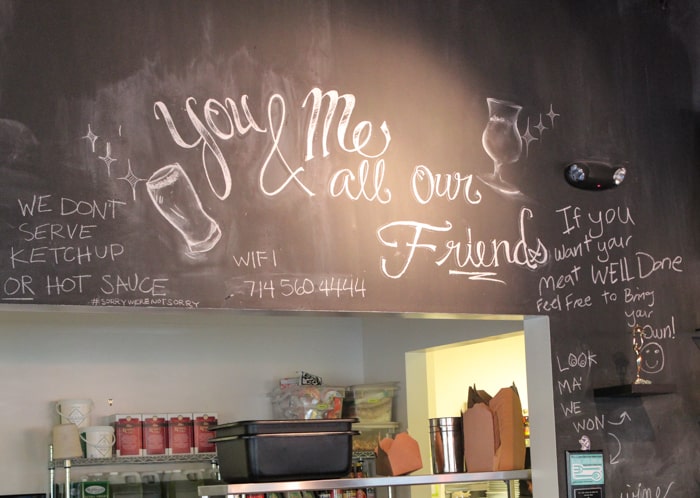 You & Me
all our
Friends
WE DONT
SERVE
KETCHUP
OR HOT SAUCE
#SORRYWERENOTSORRY
WIFI
714 560 4444
If you
want your
meat WELL Done
Feel Free to Bring
your
own!
LOOK
MA'
WE
WON